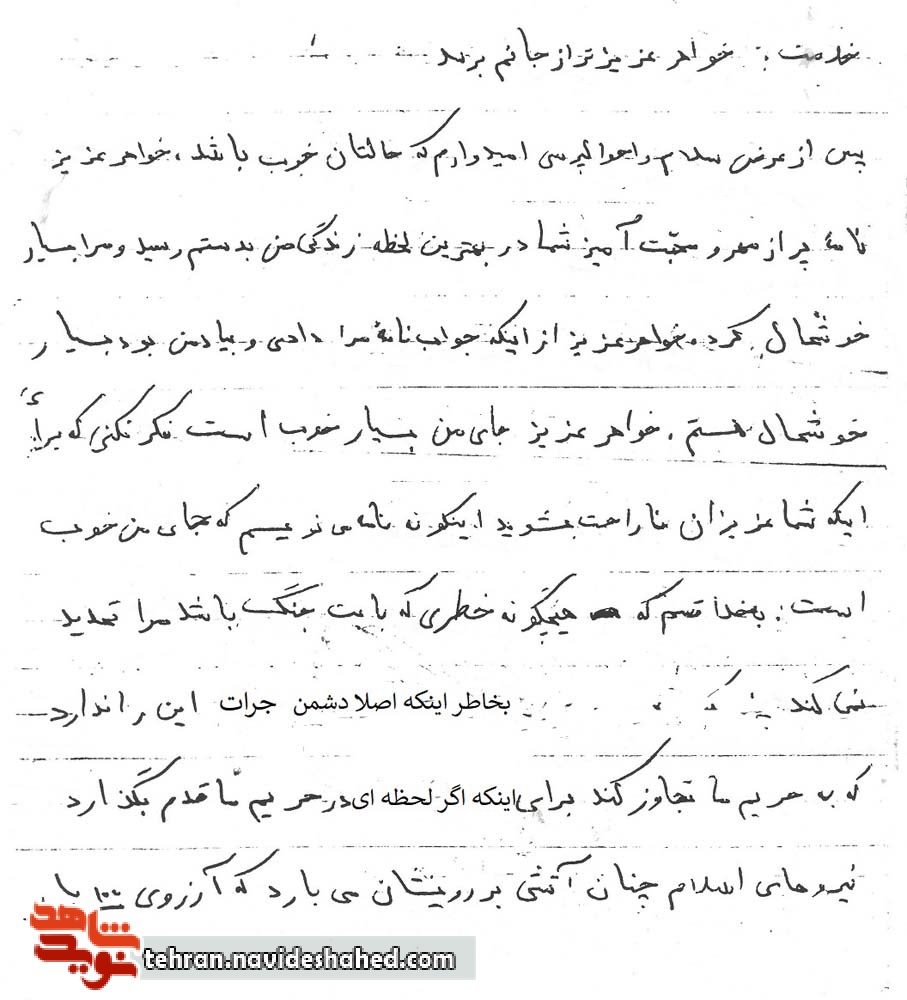 خدمت : خواهر عزیزتر از جانم برسد
پس از عرض سلام و احوالپرسی امیدوارم که حالتان خوب باشد، خواهر عزیز
نامهٔ پر از مهر و محبّت آمیز شما در بهترین لحظه زندگی من بدستم رسید و مرا بسیار
خوشحال کرد، خواهر عزیز از اینکه جواب نامهٔ مرا دادی و بیاد من بود بسیار
خوشحال هستم، خواهر عزیز جای من بسیار خوب است فکر نکنی که برای
اینکه شما عزیزان ناراحت نشوید اینگونه نامه می نویسم که جای من خوب
است: بخدا قسم که هیچگونه خطری که بابت جنگ باشد مرا تهدید
نمی کند بخاطر اینکه اصلا دشمن جرات این را ندارد
که به حریم ما تجاوز کند برای اینکه اگر لحظه ای در حریم ما قدم بگذارد
نیروهای اسلام چنان آتشی بر رویشان می بارد که آرزوی
شاهد
نوید
tehran.navideshahed.com